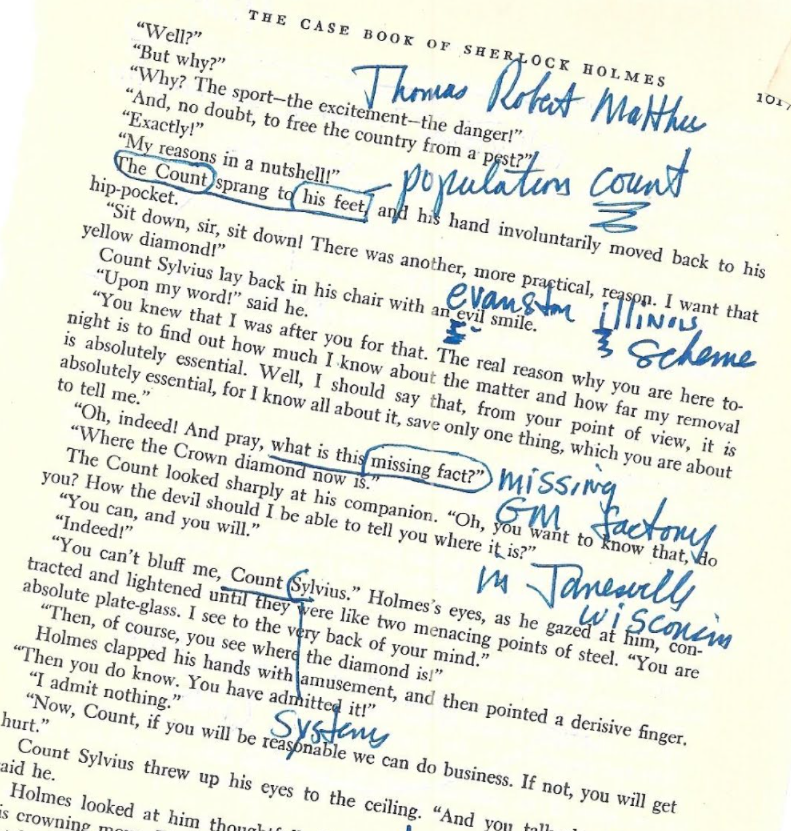 THE CASE BOOK OF SHERLOCK HOLMES
1017
“Well?”
“But why?”
“Why? The sport—the excitement—the danger!”
Thomas Robert Malthus
“And, no doubt, to free the country from a pest?”
“Exactly!”
“My reasons in a nutshell!”
population count
The Count sprang to his feet, and his hand involuntarily moved back to his
hip-pocket.
“Sit down, sir, sit down! There was another, more practical, reason. I want that
yellow diamond!”
Count Sylvius lay back in his chair with an evil smile.
evanston illinois
scheme
“Upon my word!” said he.
“You knew that I was after you for that. The real reason why you are here to-
night is to find out how much I know about the matter and how far my removal
is absolutely essential. Well, I should say that, from your point of view, it is
absolutely essential, for I know all about it, save only one thing, which you are about
to tell me.”
“Oh, indeed! And pray, what is this missing fact?”
missing
GM factory
in Janesvill
wisconsin
“Where the Crown diamond now is.”
The Count looked sharply at his companion. “Oh, you want to know that, do
you? How the devil should I be able to tell you where it is?”
“You can, and you will.”
“Indeed!”
“You can’t bluff me, Count Sylvius.” Holmes’s eyes, as he gazed at him, con-
tracted and lightened until they were like two menacing points of steel. “You are
absolute plate-glass. I see to the very back of your mind.”
“Then, of course, you see where the diamond is!”
Holmes clapped his hands with amusement, and then pointed a derisive finger.
“Then you do know. You have admitted it!”
“I admit nothing.”
Systems
“Now, Count, if you will be reasonable we can do business. If not, you will get
hurt.”
Count Sylvius threw up his eyes to the ceiling. “And you
aid he.
Holmes looked at him
is crowning